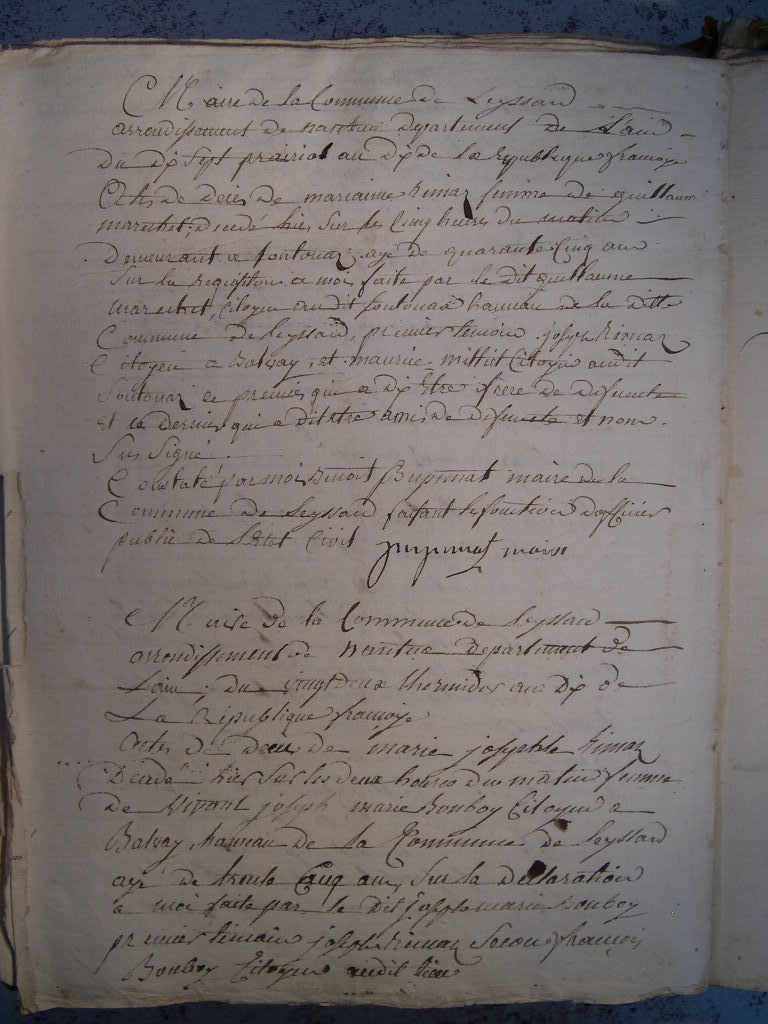 Maire de la Commune de Leyssard
arrondissement de nantua Departement de L'ain
Du dix Sept prairial an Dix de la republique françoise
Acte de deces de mariaine femme de guillaume
marechet, decedé hier Sur les Cinq heures du matin
Demeurant a Soutonaz, agé de quarante Cinq ans
Sur la requisition a moi faite par le dit guillaume
marechet, Citoyen audit Soutonax hameau de la ditte
Commune de leyssard, premier temoin joseph
Citoyen a Balvay, et maurice mittit Citoyen audit
Soutonaz ce premier qui a dit Etre frere de difuncte
et ce dernier qui a dit etre ami de difuncte et nom
Sus Signé
Constaté par moi Benoit maire de la
Commune de Leyssard faisant les fonction d'officier
public de l'état Civil maire
Maire de la Commune de leyssard
arrondissement de Nantua departement de
L'ain, du vingt Deux thermidor an Dix de
La Republique françoise
Acte de deces de marie josephte
Decede hier Sur les deux heures du matin femme
De joseph marie Bonboy Citoyen a
Balvay hameau de la Commune de leyssard
agé de trente Cinq ans, Sur la Declaration
a moi faite par le Dit joseph marie Bonboy
premier temoin joseph Secon françois
Bonboy Citoyen audit lieu